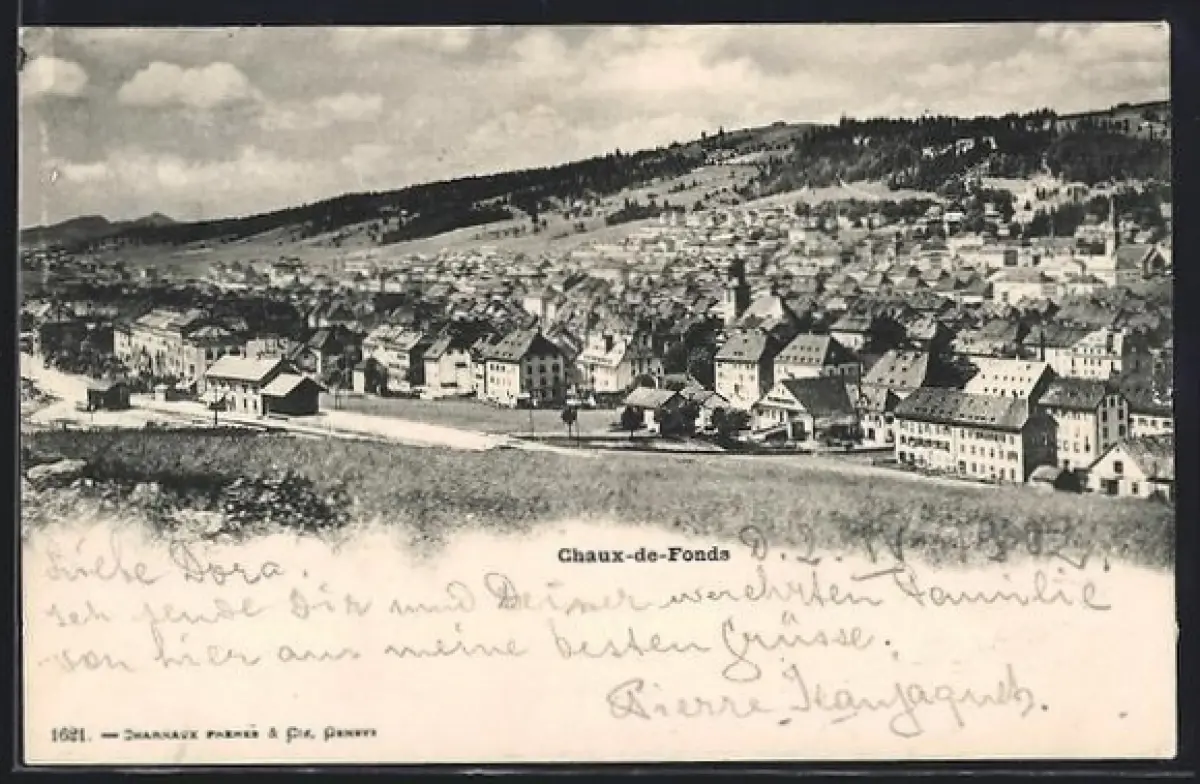 Chaux-de-Fonds
D. 2. IV. 1902.
Liebe Dora.
Ich sende Dir und Deiner werehrten Familie
von hier aus meine besten Grüsse.
Pierre Jeanjaquet.
1621. — CHARNAUX FRÈRES & Cie, GENÈVE